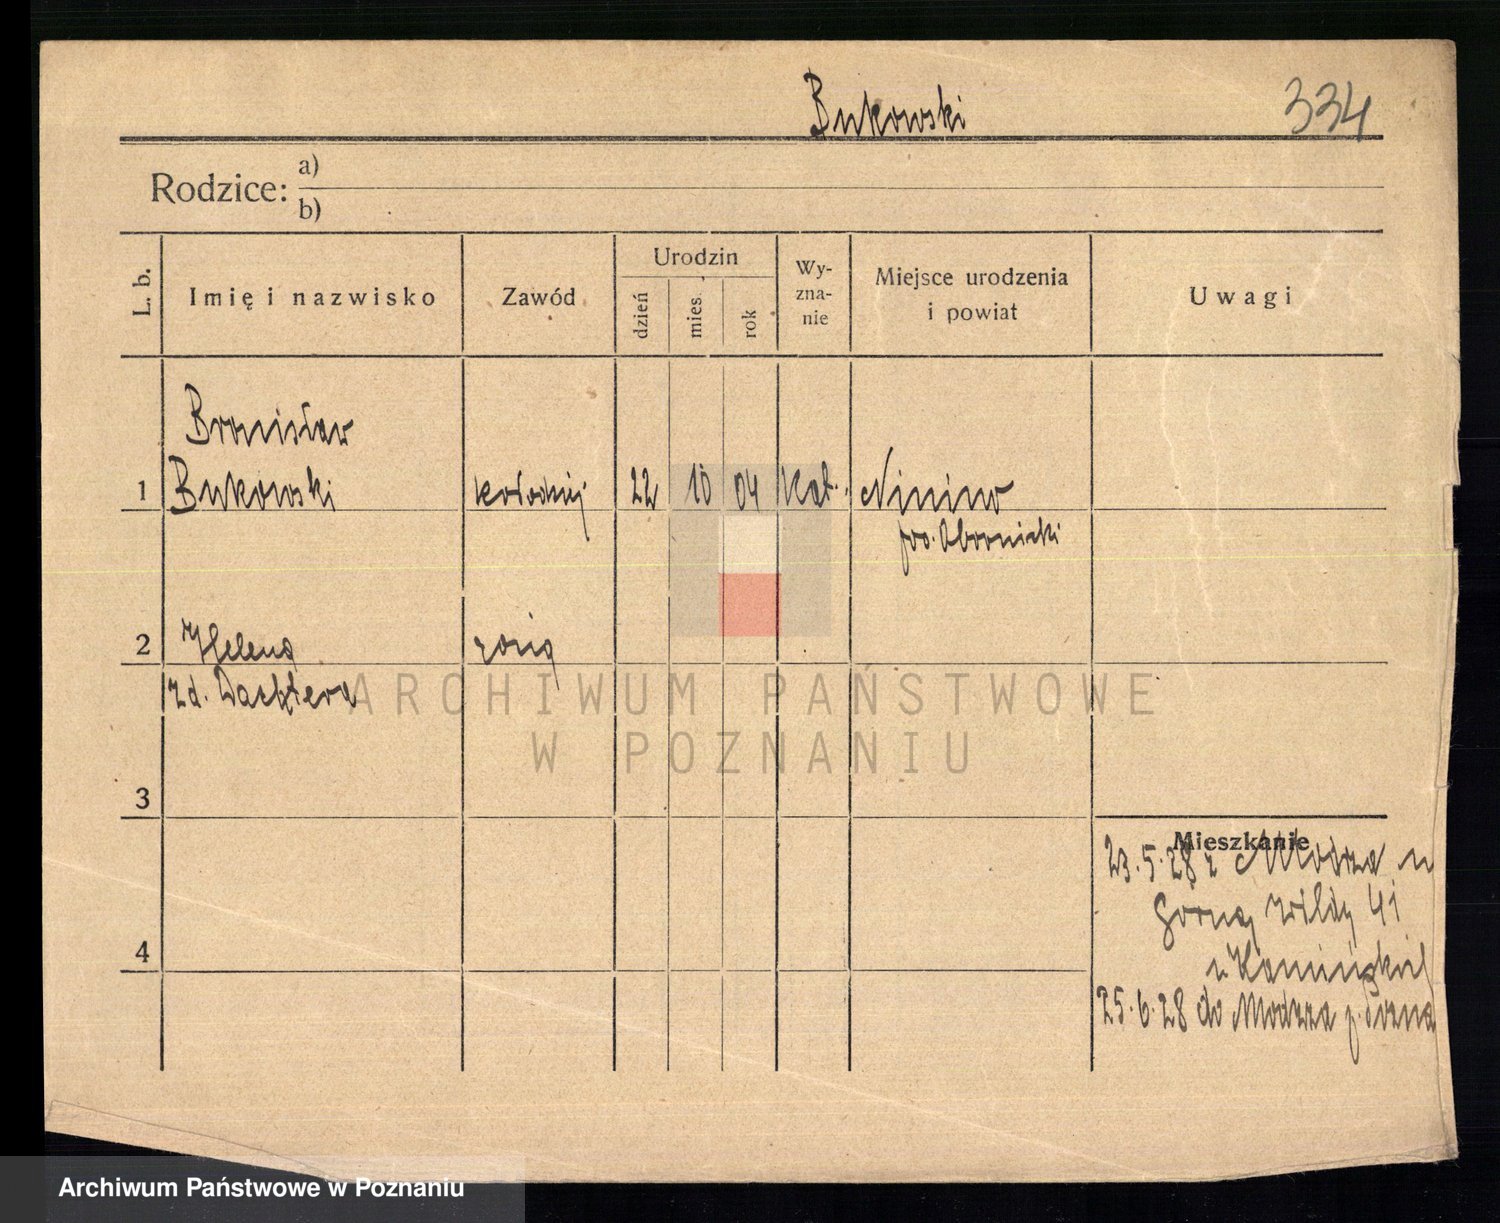 Bukowski 334
Rodzice: a)
b)
L. b. Imię i nazwisko Zawód Urodzin dzień mies. rok Wy-zna-nie Miejsce urodzenia i powiat Uwagi
Bronisław
1 Bukowski kołodziej 22 10 04 kat. Ninino
pow. Obornicki
2 Helena żona
zd. Wachtera
3
4
Mieszkanie
23.5.28 z
Górna Wilda 41
u Kamińskich
25.6.28 do p. Pozna
ARCHIWUM PAŃSTWOWE
W POZNANIU
Archiwum Państwowe w Poznaniu